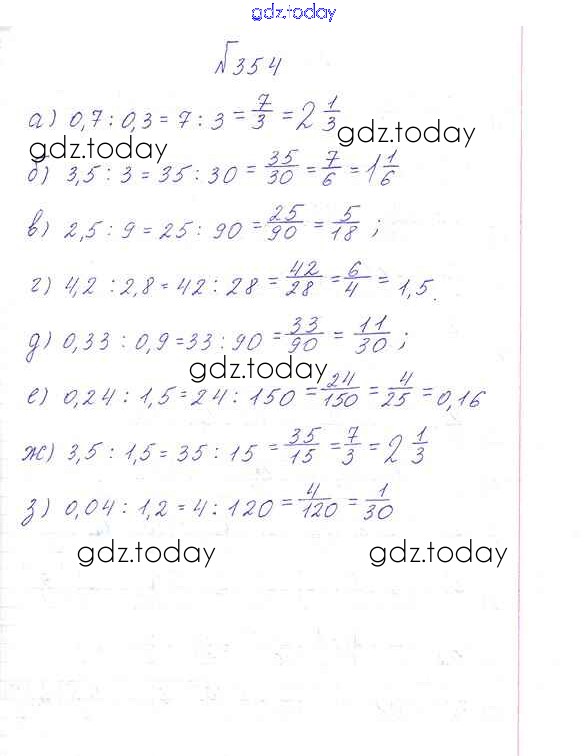 gdz.today
№354
а) 0,7 : 0,3 = 7 : 3 = 7/3 = 2 1/3
gdz.today
gdz.today
б) 3,5 : 3 = 35 : 30 = 35/30 = 7/6 = 1 1/6
в) 2,5 : 9 = 25 : 90 = 25/90 = 5/18 ;
г) 4,2 : 2,8 = 42 : 28 = 42/28 = 6/4 = 1,5.
д) 0,33 : 0,9 = 33 : 90 = 33/90 = 11/30 ;
gdz.today
е) 0,24 : 1,5 = 24 : 150 = 24/150 = 4/25 = 0,16
ж) 3,5 : 1,5 = 35 : 15 = 35/15 = 7/3 = 2 1/3
з) 0,04 : 1,2 = 4 : 120 = 4/120 = 1/30
gdz.today gdz.today